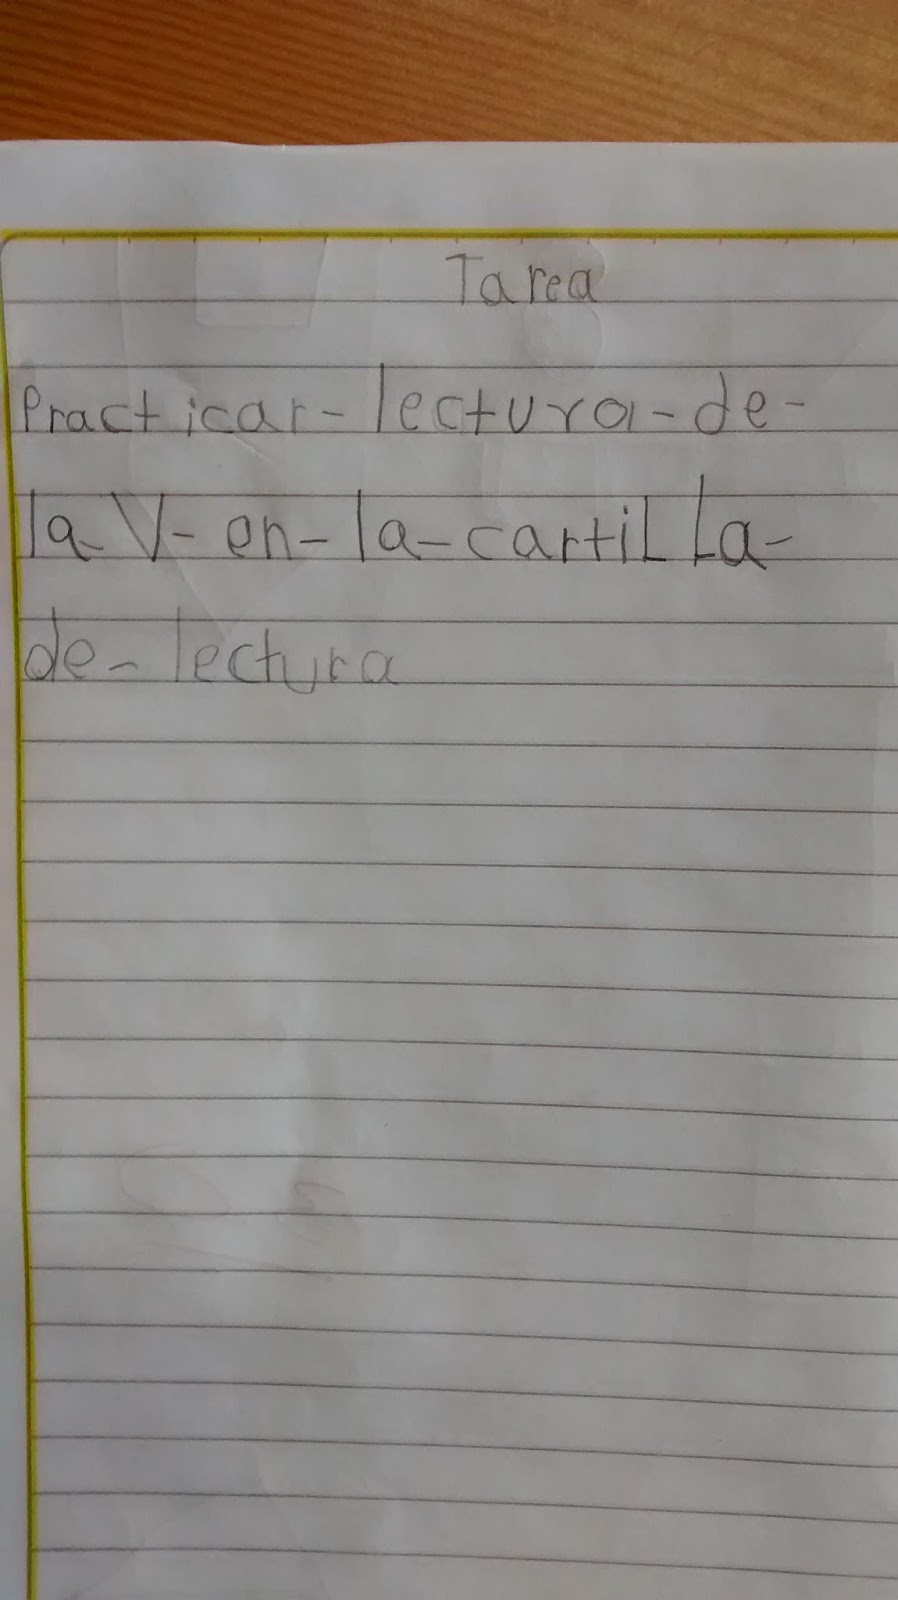 Tarea
Practicar-lectura-de-
la V-en-la-cartilLa-
de-lectura